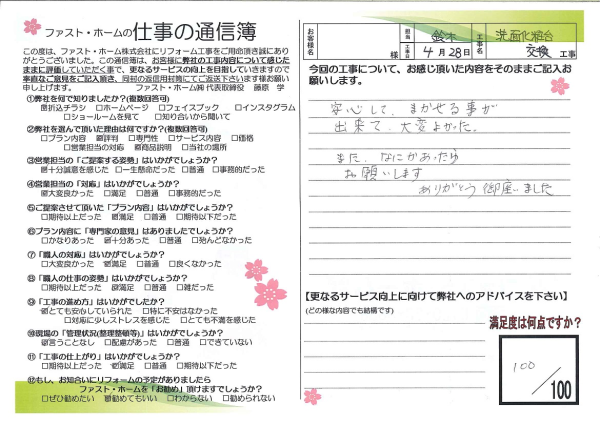 ファスト・ホームの仕事の通信簿
この度は、ファスト・ホーム株式会社にリフォーム工事をご用命頂き誠にあり
がとうございました。この通信簿は、お客様に弊社の工事内容について感じた
ままに評価していただく事で、更なるサービスの向上を目指していきますので
率直なご意見をご記入頂き、同封の返信用封筒にてご返送下さいます様お願い
申し上げます。 ファスト・ホーム㈱ 代表取締役 藤原 学
①弊社を何で知りましたか?(複数回答可)
☑折込チラシ □ホームページ □フェイスブック □インスタグラム
□ショールームを見て □知り合いから聞いて
②弊社を選んで頂いた理由は何ですか?(複数回答可)
□プラン内容 ☑評判 □専門性 □サービス内容 □価格
□営業担当の対応 ☑商品説明 □当社の場所
③営業担当の「ご提案する姿勢」はいかがでしょうか?
☑十分誠意を感じた □一生懸命だった □普通 □事務的だった
④営業担当の「対応」はいかがでしょうか?
☑大変良かった □満足 □普通 □事務的だった
⑤ご提案させて頂いた「プラン内容」はいかがでしょうか?
□期待以上だった ☑満足 □普通 □期待以下だった
⑥プラン内容に「専門家の意見」はありましたでしょうか?
□かなりあった ☑十分あった □普通 □殆んどなかった
⑦「職人の対応」はいかがでしょうか?
□大変良かった ☑満足 □普通 □良くなかった
⑧「職人の仕事の姿勢」はいかがでしょうか?
□期待以上だった ☑満足 □普通 □雑だった
⑨「工事の進め方」はいかがでしたか?
☑とても安心していられた □特に不安はなかった
□対応に少しストレスを感じた □とても不満を感じた
⑩現場の「管理状況(整理整頓等)」はいかがでしょうか?
☑言うことなし □配慮があった □普通 □できていない
⑪「工事の仕上がり」はいかがでしたか?
□期待以上だった ☑満足 □普通 □期待以下だった
⑫もし、お知合いにリフォームの予定がありましたら
ファスト・ホームを「お勧め」頂けますでしょうか?
□ぜひ勧めたい ☑勧めてもいい □わからない □勧められない
お客様名 様
担当 鈴木
工事日 4月28日
工事名 洗面化粧台
交換 工事
今回の工事について、お感じ頂いた内容をそのままご記入お
願いします。
安心して、まかせる事が
出来て、大変よかった。
また、なにかあったら
お願いします
ありがとう御座いました
【更なるサービス向上に向けて弊社へのアドバイスを下さい】
(どの様な内容でも結構です)
満足度は何点ですか?
100
/100